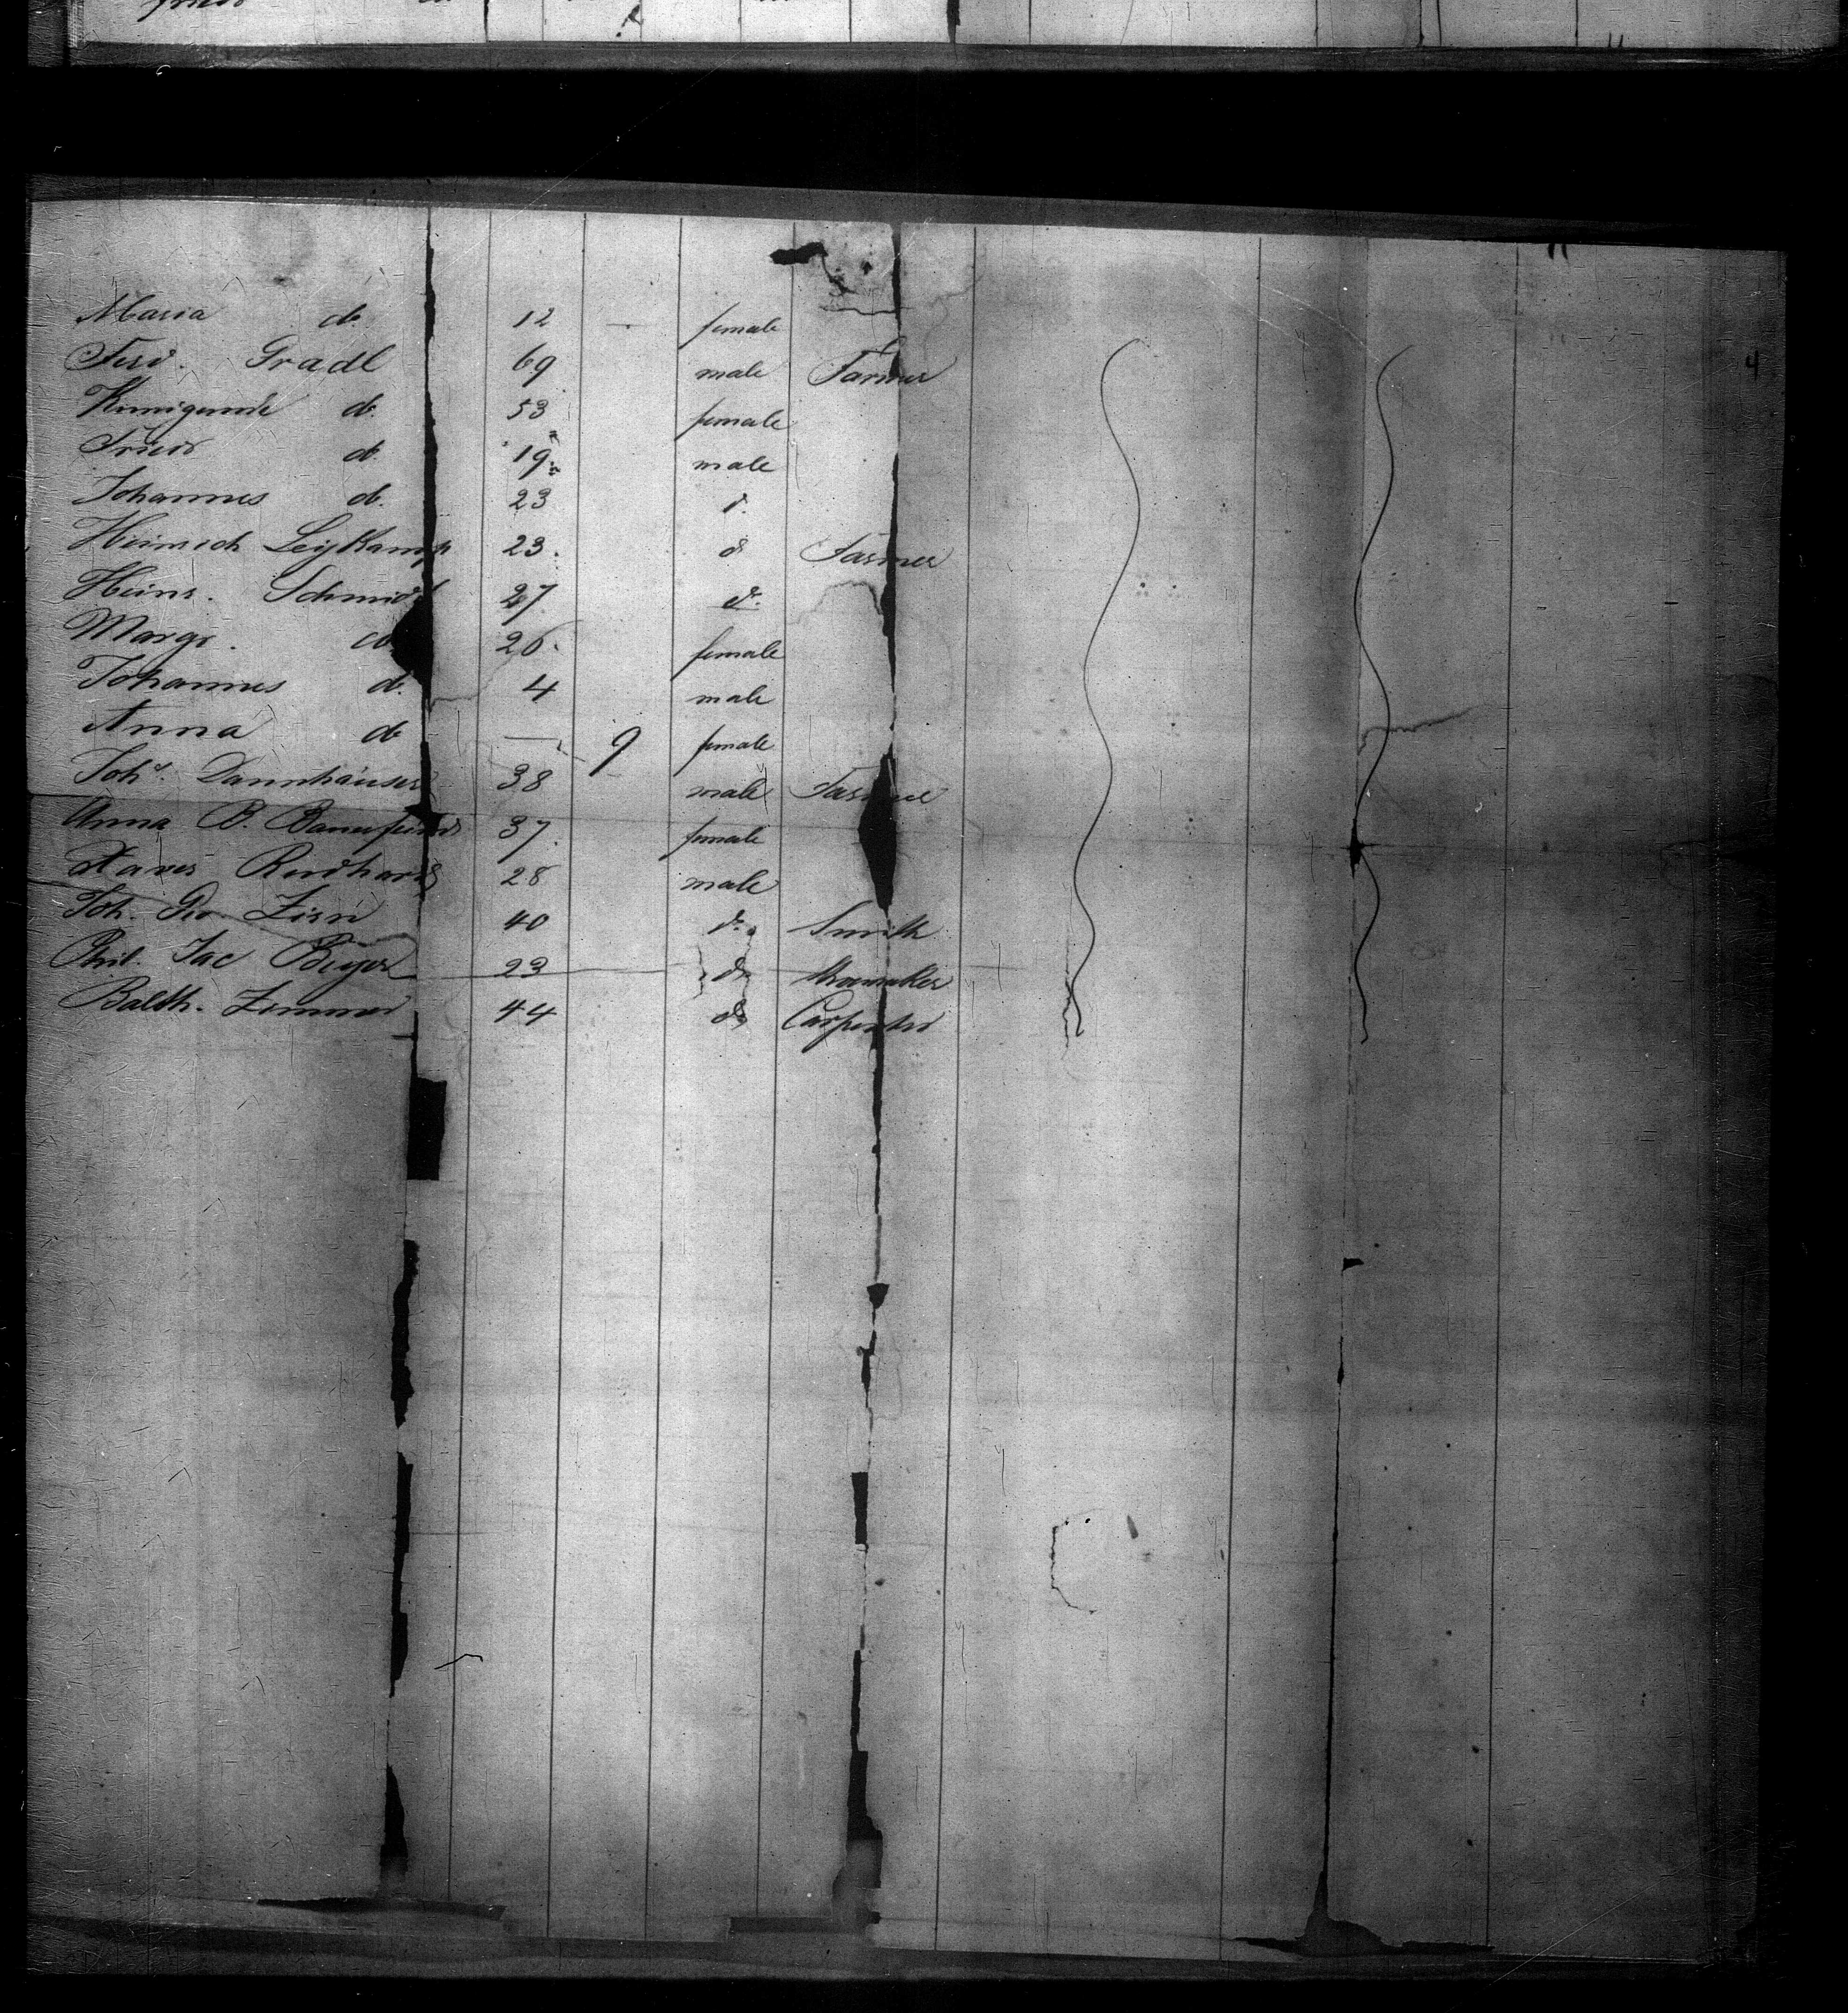 Maria do 12 female
Ferd. Gradl 69 male Farmer
Kunigunde do. 53 female
Fried do 19 male
Johannes do. 23 do.
Heinrich Leykamp 23. do Farmer
Heinr. Schmidt 27 do.
Margr. do. 26. female
Johannes do. 4 male
Anna do — 9 female
Johs. Dannhäuser 38 male Farmer
Anna B. 37. female
Xaver 28 male
Joh. Geo 40 do. Smith
Phil. Jac Beyer 23 do. Shoemaker
Balth. Zimmer 44 do Carpenter
4